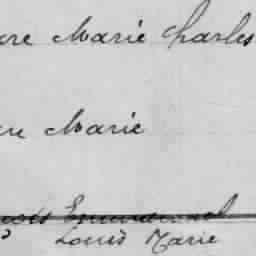 Marie Charles
Marie
Emmanuel
Louis Marie